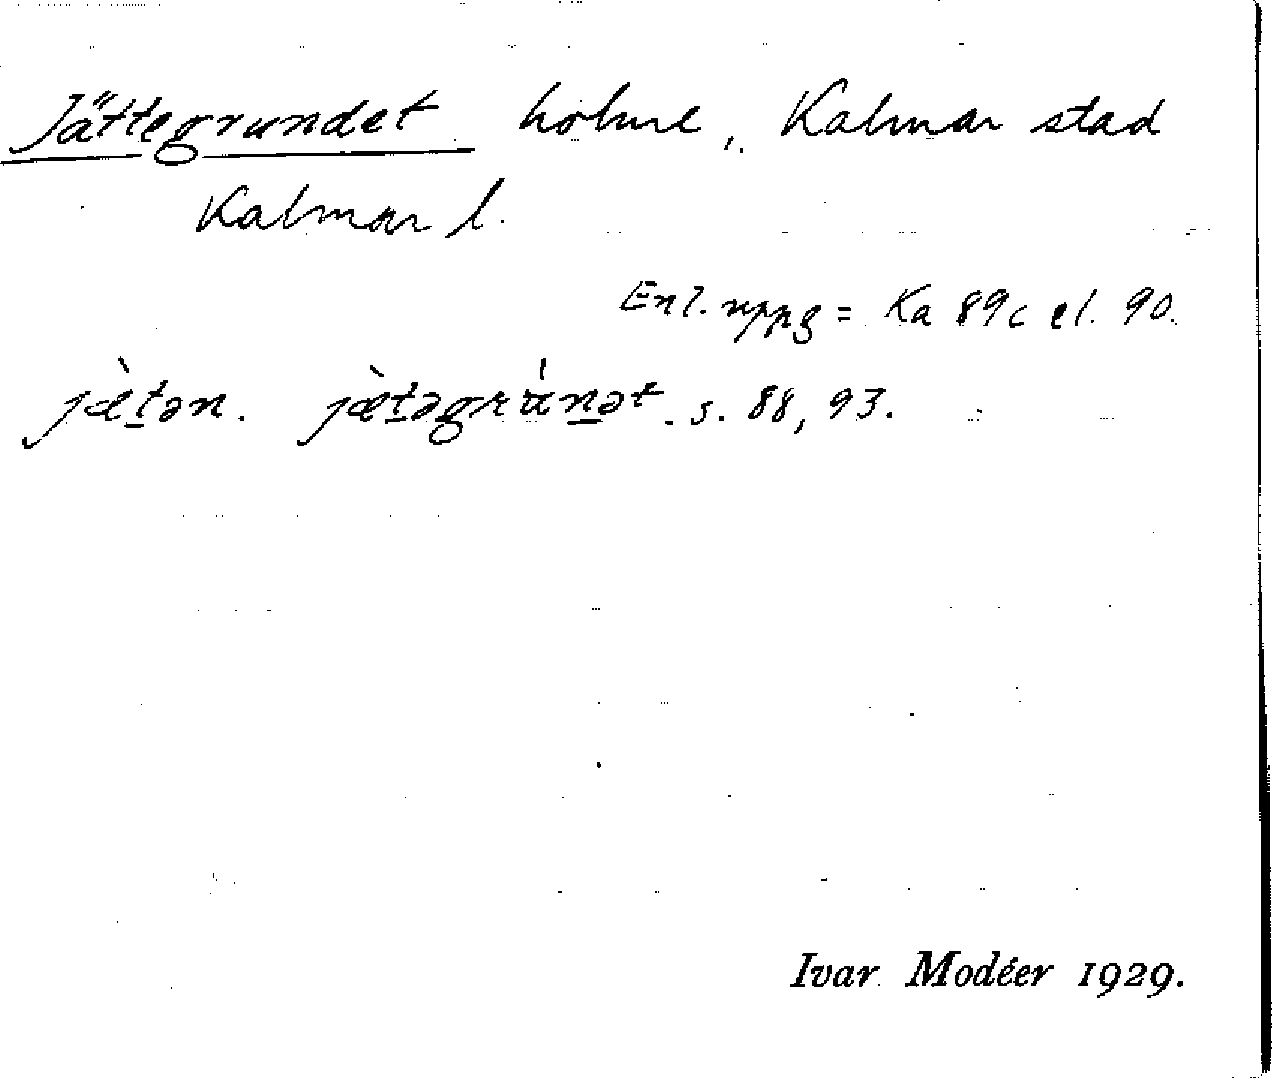 Jättegrundet holme, Kalmar stad
Kalmar l.
Enl. uppg = Ka 89c el. 90.
jæ̀t̠ən. jæ̀t̠əgrún̠ət. s. 88, 93.
Ivar Modéer 1929.